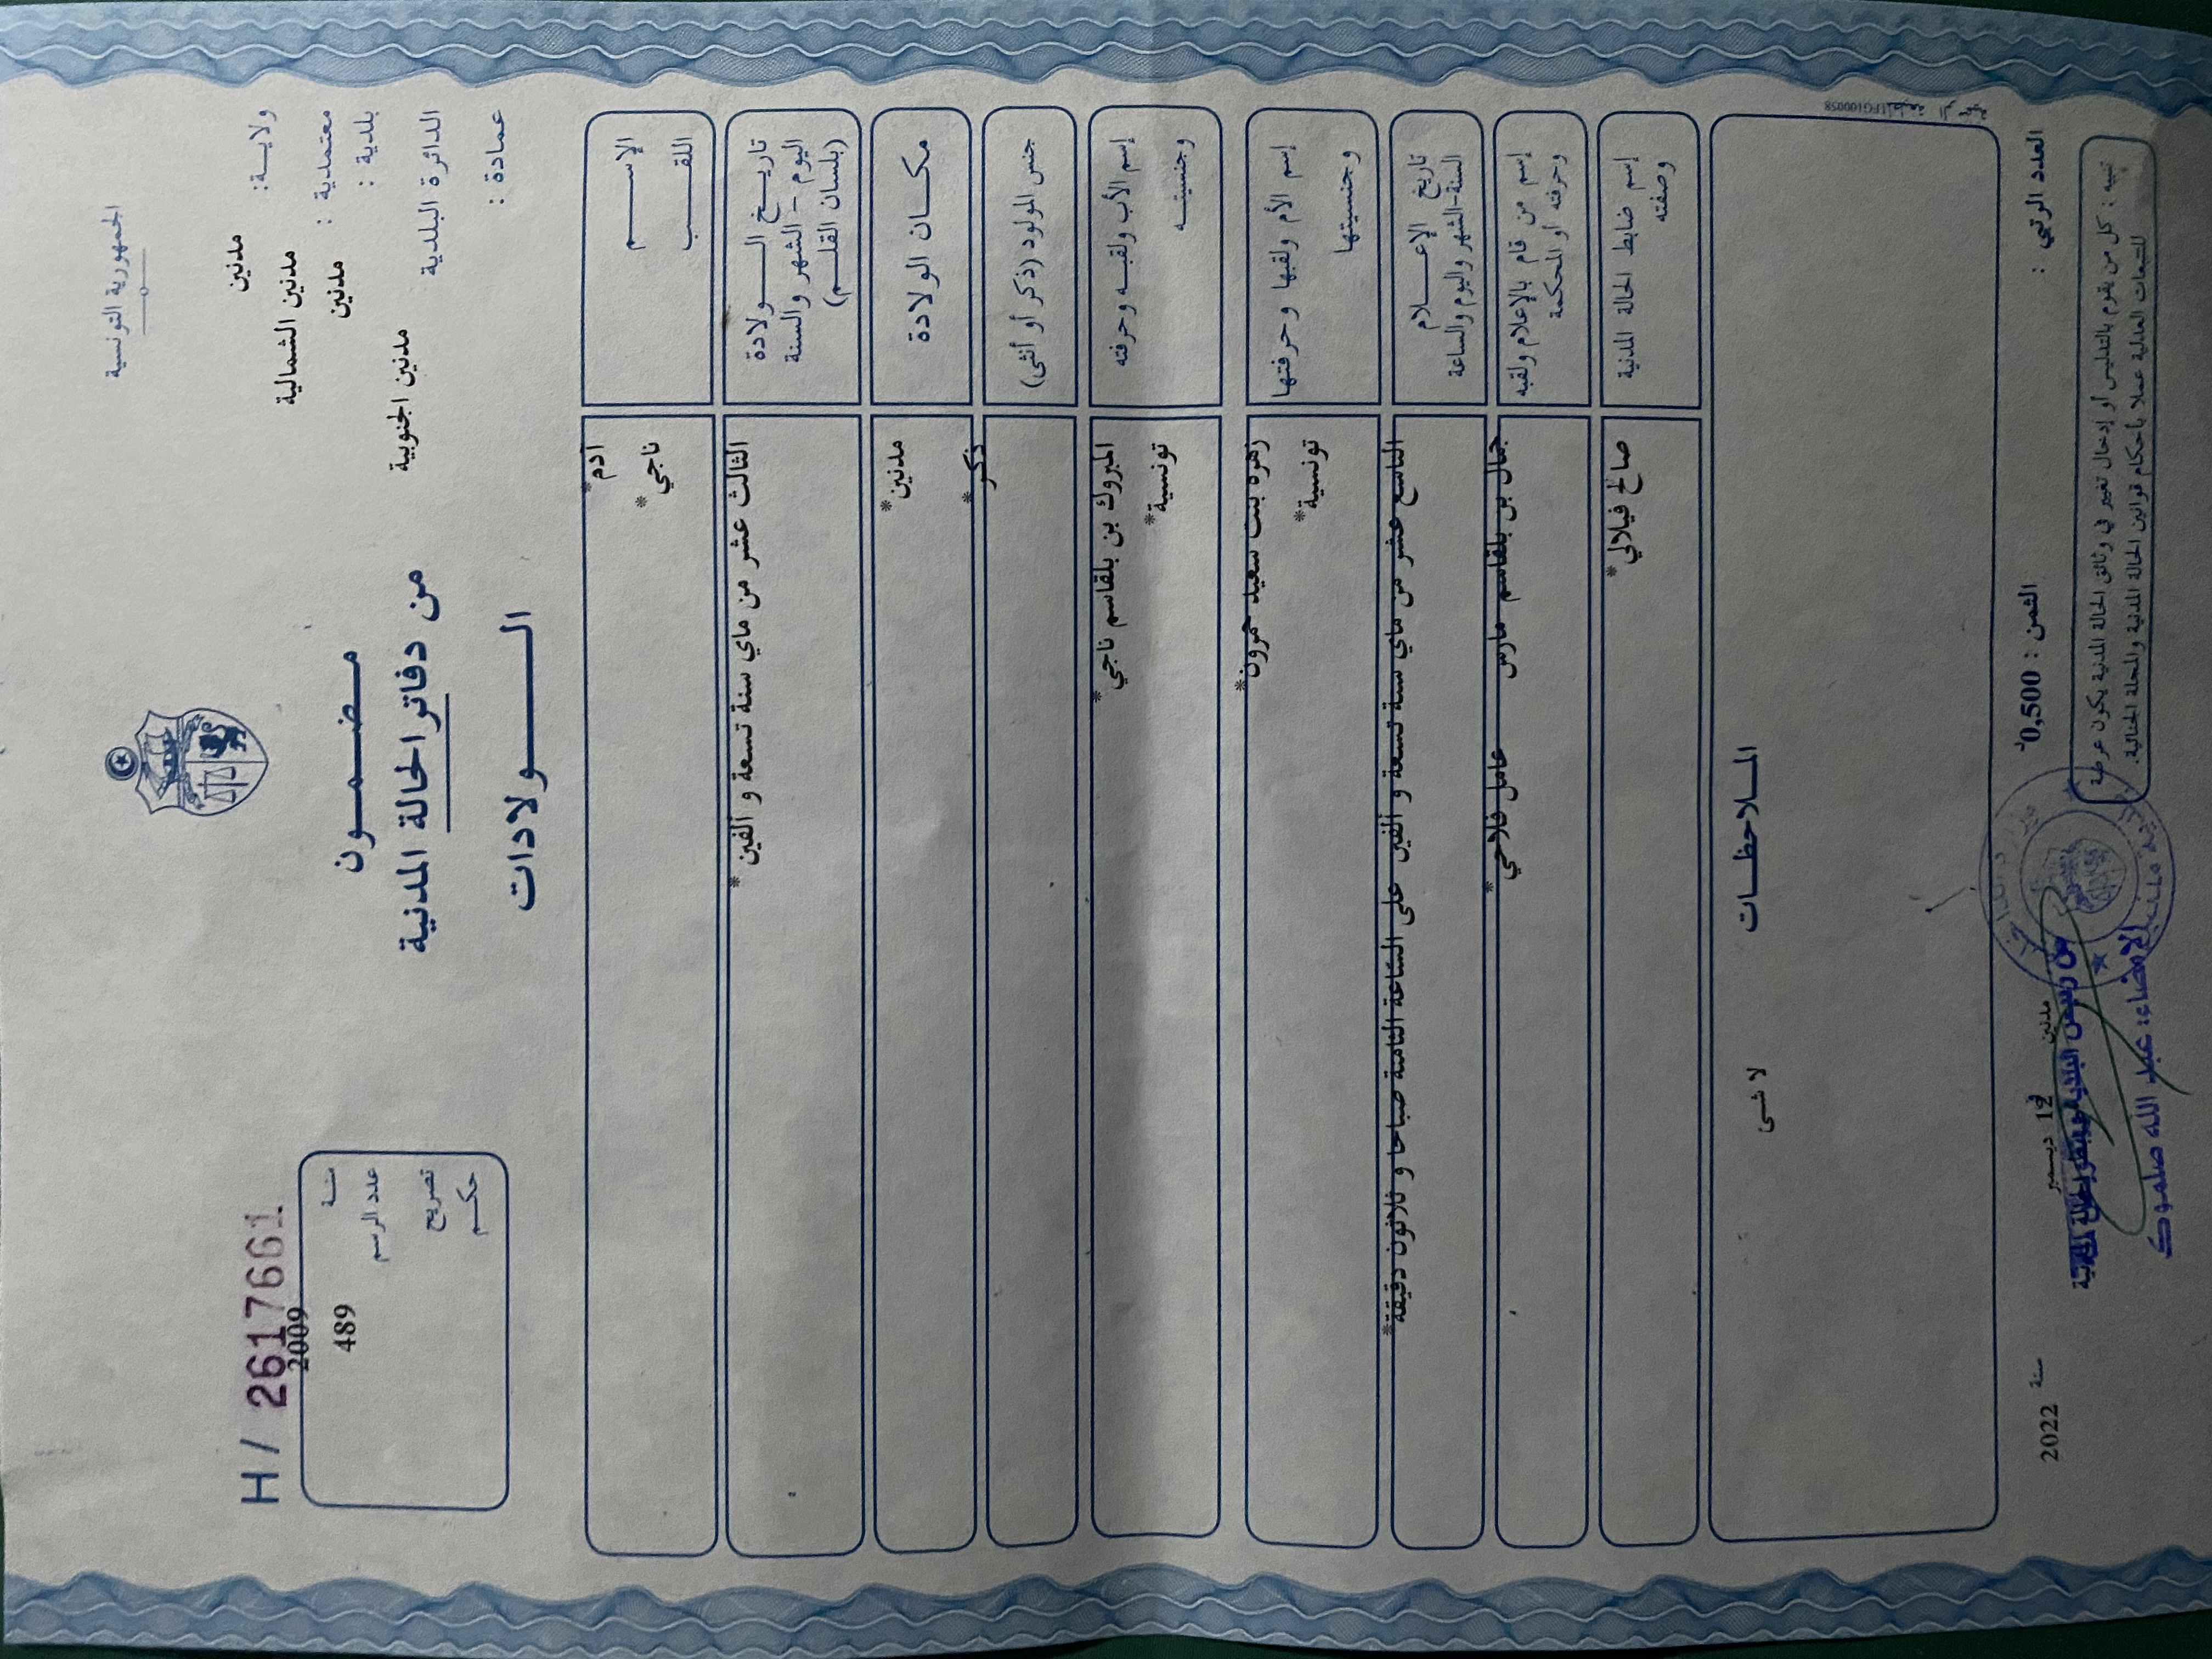 الجمهورية التونسية
ولاية: مدنين
معتمدية : مدنين الشمالية
بلدية : مدنين
الدائرة البلدية مدنين الجنوبية
عمادة :
مضمون
من دفاتر الحالة المدنية
الولادات
H / 2617661
سنة 2009
عدد الرسم 489
تصريح
حكم
الإسم آدم*
اللقب ناجي*
تاريخ الولادة
اليوم - الشهر والسنة
(بلسان القلم)
الثالث عشر من ماي سنة تسعة و الفين*
مكان الولادة مدنين*
جنس المولود (ذكر أو أنثى) ذكر*
إسم الأب ولقبه وحرفته المبروك بن بلقاسم ناجي*
وجنسيته تونسية*
إسم الأم ولقبها وحرفتها زهره بنت سعيد حمرون*
وجنسيتها تونسية*
تاريخ الإعلام
السنة-الشهر واليوم والساعة
التاسع عشر من ماي سنة تسعة و الفين على الساعة الثامنة صباحا و ثلاثون دقيقة*
إسم من قام بالإعلام ولقبه
وحرفته أو المحكمة
جمال بن بلقاسم مارس عامل فلاحي*
إسم ضابط الحالة المدنية
وصفته
صالح فيلالي*
الملاحظات
لا شى
العدد الرتبي :
الثمن : 0,500د
مدنين 12 ديسمبر سنة 2022
تنبيه : كل من يقوم بالتدليس أو إدخال تغيير في وثائق الحالة المدنية يكون عرضة
للتتبعات العدلية عملا بأحكام قوانين الحالة المدنية والمجلة الجنائية.
الإمضاء: عبد الله صلموك